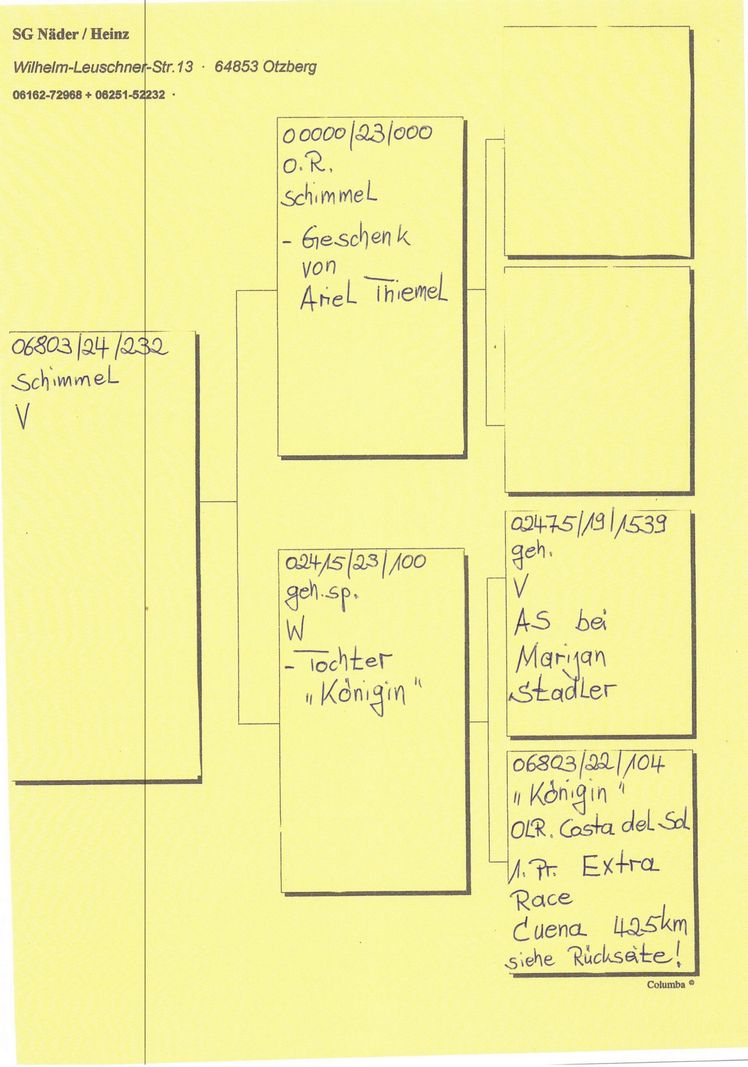 SG Näder / Heinz
Wilhelm-Leuschner-Str.13 · 64853 Otzberg
06162-72968 + 06251-52232 ·
00000/23/000
O.R.
Schimmel
- Geschenk
von
Ariel Thiemel
06803/24/232
Schimmel
V
02475/19/1539
geh.
V
AS bei
Marijan
Stadler
02415/23/100
geh.sp.
W
- Tochter
"Königin"
06803/22/104
"Königin"
OLR. Costa del Sol
1. Pr. Extra
Race
Cuena 425km
siehe Rückseite!
Columba ®